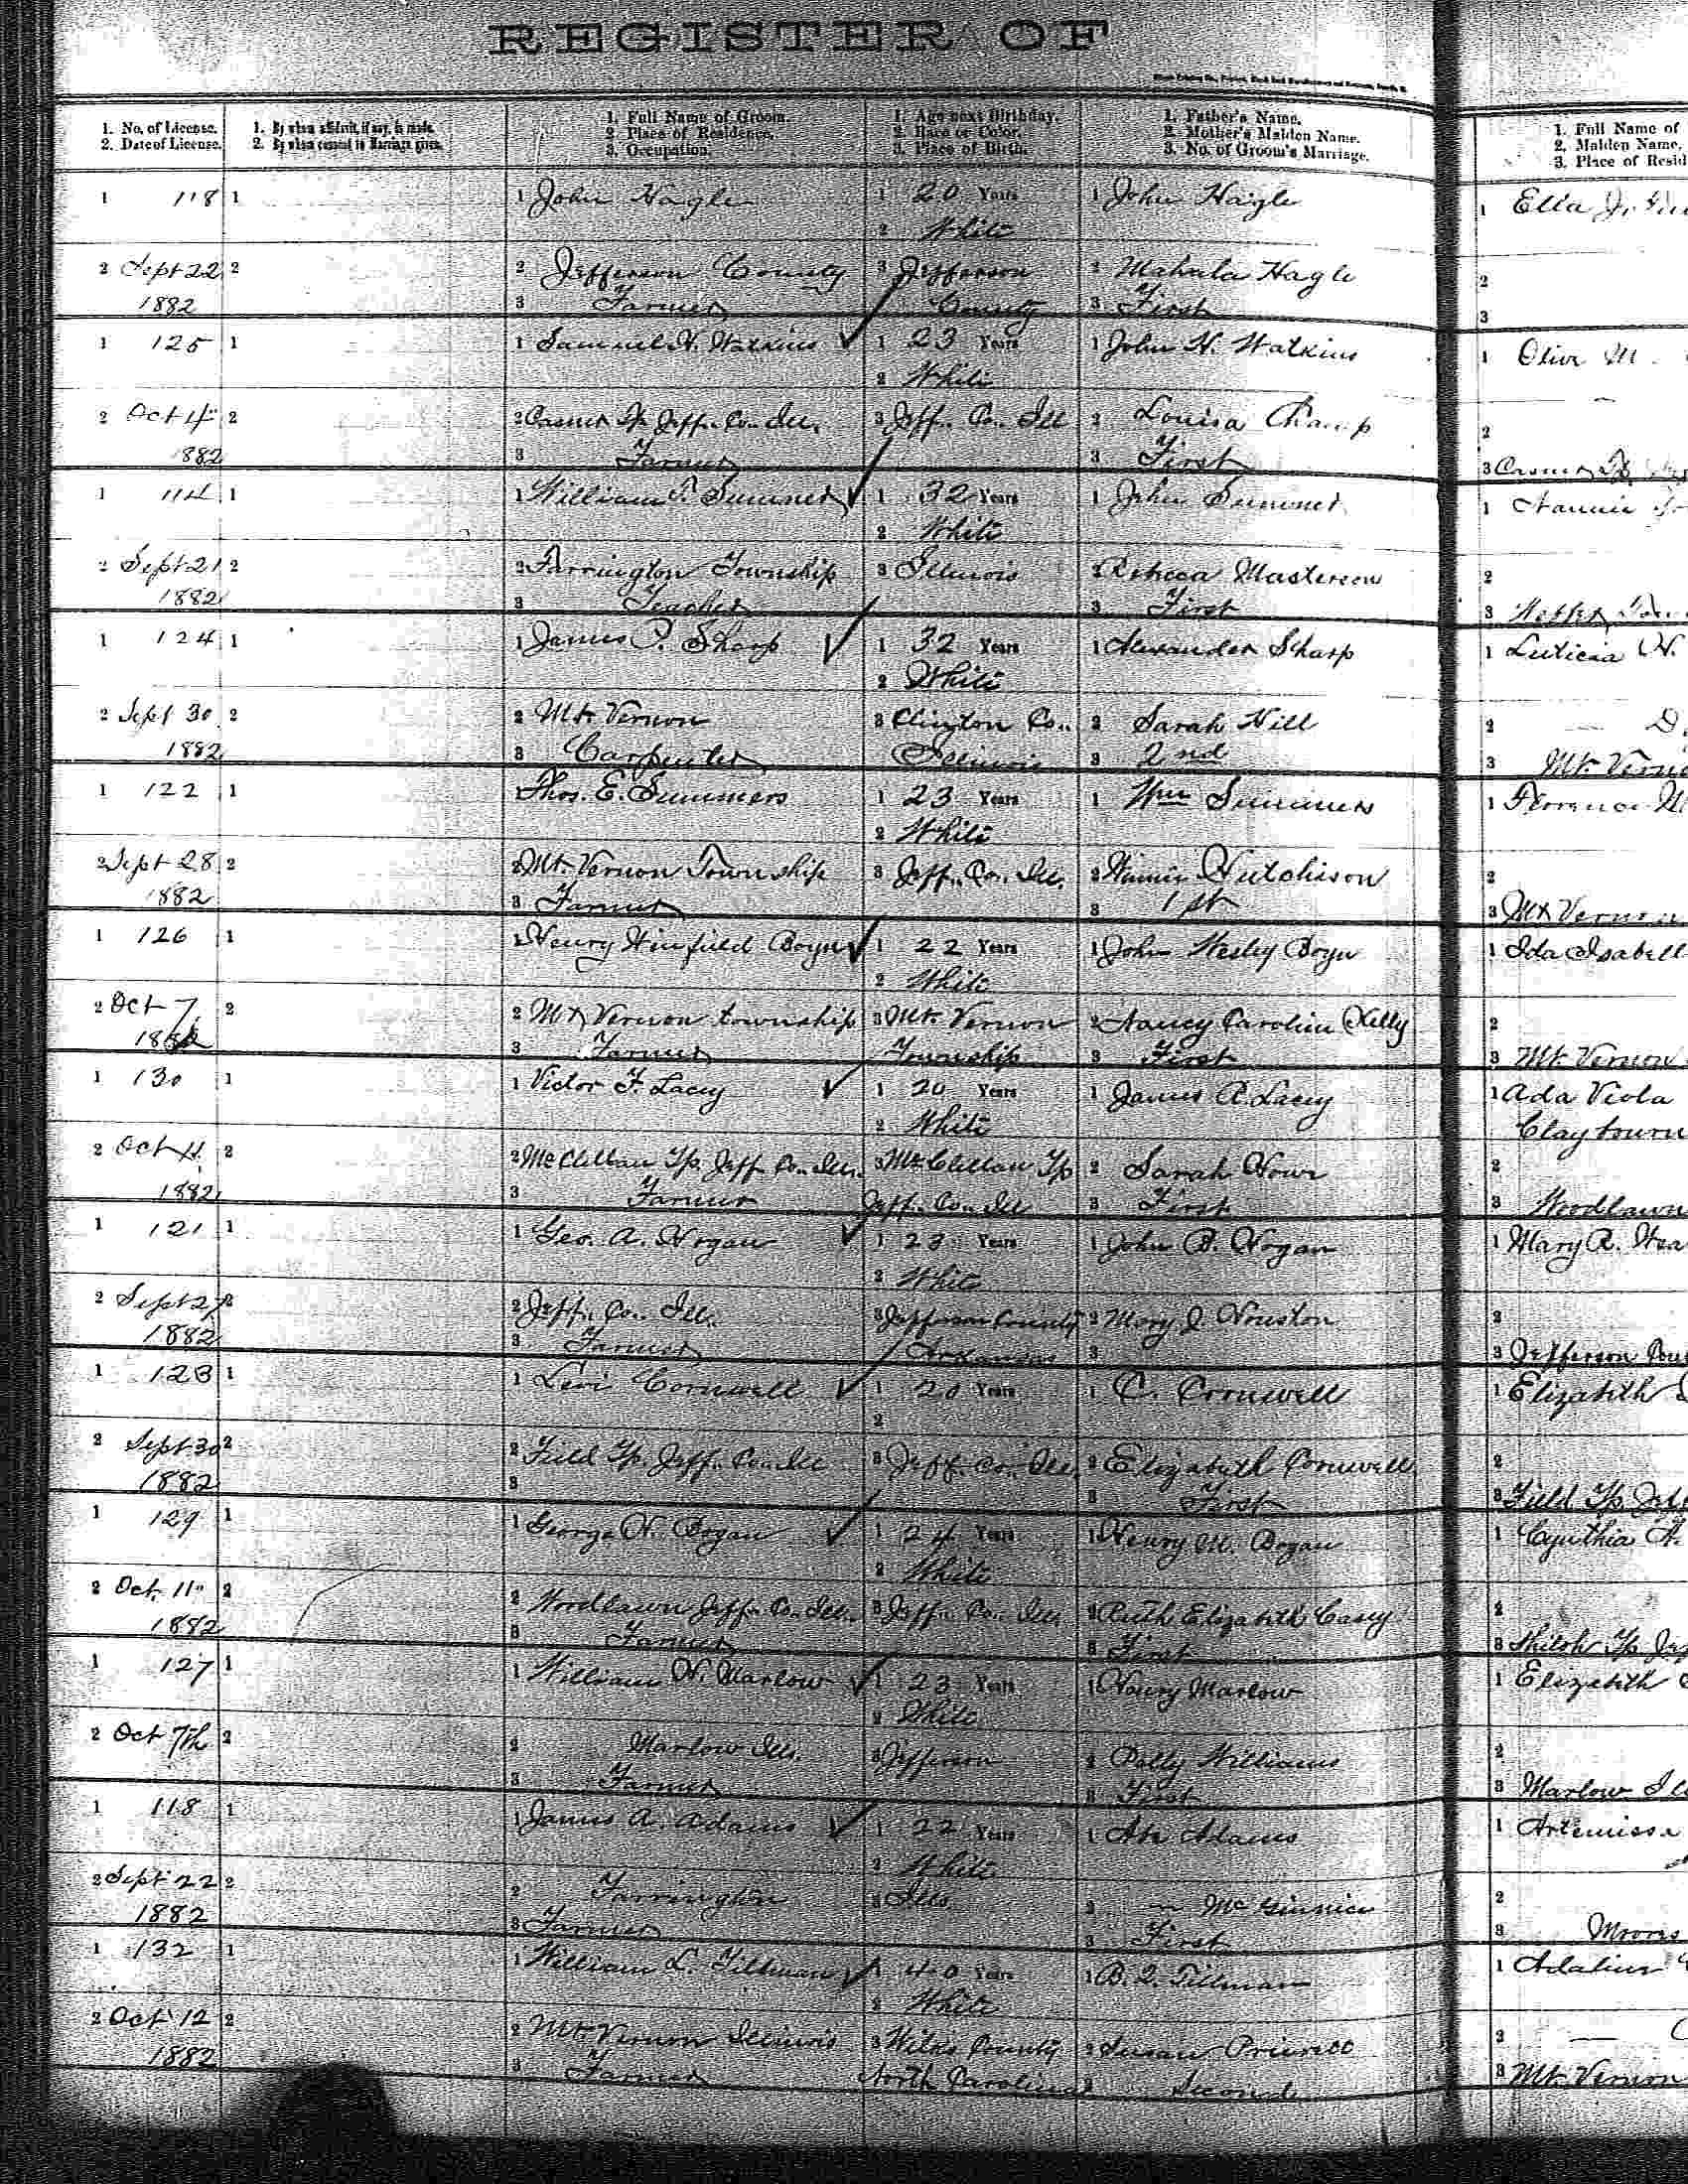 REGISTER OF
1. No. of License.
2. Date of License.
1. By whom affidavit, if any, is made.
2. By whom consent to Marriage given.
1. Full Name of Groom.
2. Place of Residence.
3. Occupation.
1. Age next Birthday.
2. Race or Color.
3. Place of Birth.
1. Father's Name.
2. Mother's Maiden Name.
3. No. of Groom's Marriage.
1. Full Name of
2. Maiden Name.
3. Place of Resid
1 118 1 1 John Hagle 1 20 Years 1 John Hagle 1 Ella J.
2 White
2 Sept 22 2 2 Jefferson County 3 Jefferson 2 Mahala Hagle 2
1882 3 Farmer County 3 First 3
1 125 1 1 Samuel H. Watkins 1 23 Years 1 John H. Watkins 1 Olive M.
2 White
2 Oct 4 2 2 Casner Tp. Jeff. Co. Ill. 3 Jeff. Co. Ill 2 Louisa Champ 2
1882 3 Farmer 3 First 3 Casner Tp
1 114 1 1 William T. Summer 1 32 Years 1 John Summer 1 Nannie
2 White
2 Sept 21 2 2 Farrington Township 3 Illinois 2 Rebecca Masterson 2
1882 3 Teacher 3 First 3
1 124 1 1 James P. Sharp 1 32 Years 1 Alexander Sharp 1 Luticia H.
2 White
2 Sept 30 2 2 Mt. Vernon 3 Clinton Co.. 2 Sarah Hill 2 — D.
1882 3 Carpenter Illinois 3 2nd 3 Mt. Verno
1 122 1 1 Thos. E. Summers 1 23 Years 1 Wm Summers 1 Florence M
2 White
2 Sept 28 2 2 Mt. Vernon Township 3 Jeff. Co. Ill. 2 Hutchison 2
1882 3 Farmer 3 1st 3 Mt Vernon
1 126 1 1 Henry Winfield Bogan 1 22 Years 1 John Wesley Bogan 1 Ida Isabell
2 White
2 Oct 7, 2 2 Mt Vernon township 3 Mt. Vernon 2 Nancy Caroline Kelly 2
1882 3 Farmer Township 3 First 3 Mt. Vernon
1 130 1 1 Victor F. Lacey 1 20 Years 1 James A. Lacey 1 Ada Viola
2 White Claybourn
2 Oct 11 2 2 McClellan Tp. Jeff Co. Ills. 3 McClellan Tp 2 Sarah Howe 2
1882 3 Farmer Jeff. Co. Ill 3 First 3 Woodlawn
1 121 1 1 Geo. A. Hogan 1 23 Years 1 John B. Hogan 1 Mary A.
2 White
2 Sept 27 2 2 Jeff. Co. Ill. 3 Jefferson County 2 Mary J. Houston 2
1882 3 Farmer Arkansas 3 3 Jefferson Cou
1 123 1 1 Levi Cornwell 1 20 Years 1 C. Cornwell 1 Elizabeth
2
2 Sept 30 2 2 Field Tp. Jeff. Co. Ill 3 Jeff. Co. Ill. 2 Elizabeth Cornwell 2
1882 3 3 First 3 Field Tp Jef
1 129 1 1 George H. Bogan 1 24 Years 1 Henry M. Bogan 1 Cynthia A.
2 White
2 Oct. 11 2 2 Woodlawn Jeff. Co. Ill. 3 Jeff. Co. Ill. 2 Ruth Elizabeth Casey 2
1882 3 Farmer 3 First 3 Shiloh Tp Jef
1 127 1 1 William H. Marlow 1 23 Years 1 Henry Marlow 1 Elizabeth
2 White
2 Oct 7th 2 2 Marlow Ills. 3 Jefferson 2 Polly Williams 2
3 Farmer 3 First 3 Marlow Ill
1 118 1 1 James A. Adams 1 22 Years 1 Adams 1 Artemissa
2 White
2 Sept 22 2 2 Farrington 3 Ills 2 McGinnice 2
1882 3 Farmer 3 First 3 Moores
1 132 1 1 William L. Tillman 1 40 Years 1 B. Q. Tillman 1 Adaline
2 White
2 Oct 12 2 2 Mt. Vernon Illinois 3 Wilks County 2 Susan 2 —
1882 3 Farmer North Carolina 3 Second 3 Mt. Vernon